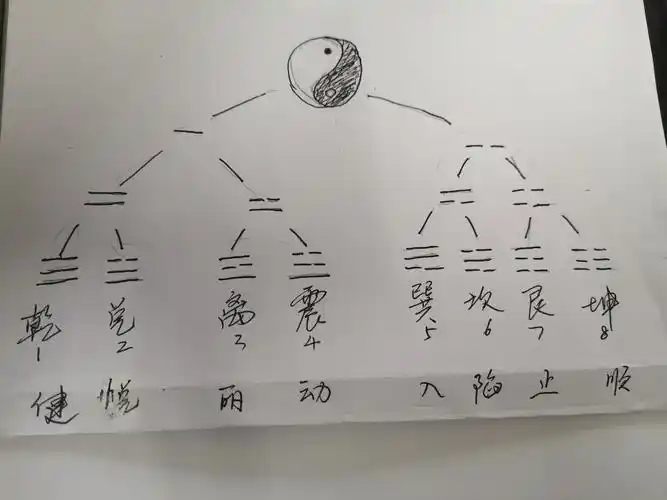 乾 兑 离 震 巽 坎 艮 坤
1 2 3 4 5 6 7 8
健 悦 丽 动 入 陷 止 顺